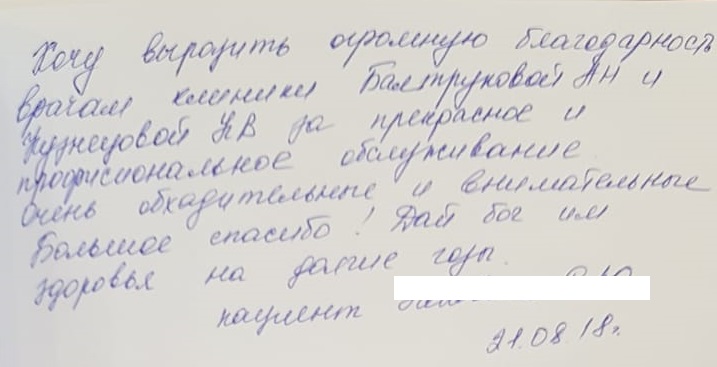 Хочу выразить огромную благодарность
врачам клиники Балтруковой АН и
Кузнецовой НВ за прекрасное и
профисиональное обслуживание
Очень обходительные и внимательные
Большое спасибо! Дай бог им
здоровья на долгие годы.
пациент
21.08.18г.